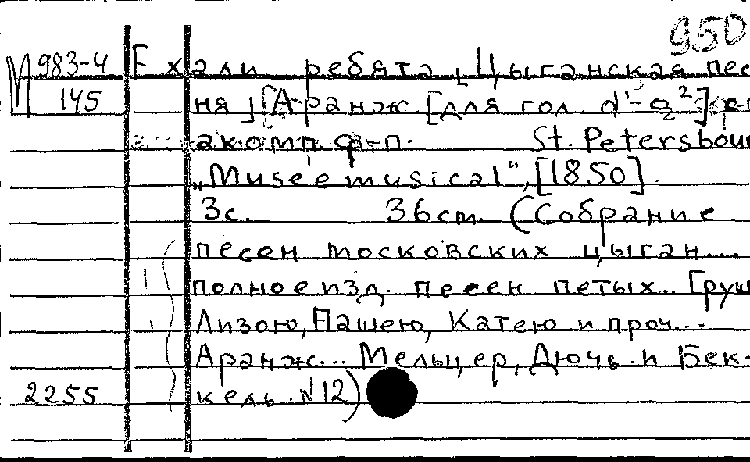 950
М 983-4 Ехали ребята, Цыганская пес
145 ня] [Аранж [для гол. d'-g²] с
акомп. ф-п. St. Petersbour
„Musée musical", [1850].
3с. 36cm. (Собрание
песен московских цыган...
полное изд. песен петых.. Груш
Лизою, Пашею, Катею и проч...
Аранж... Мельцер, Дючь и Бек-
2255 кель. N12)